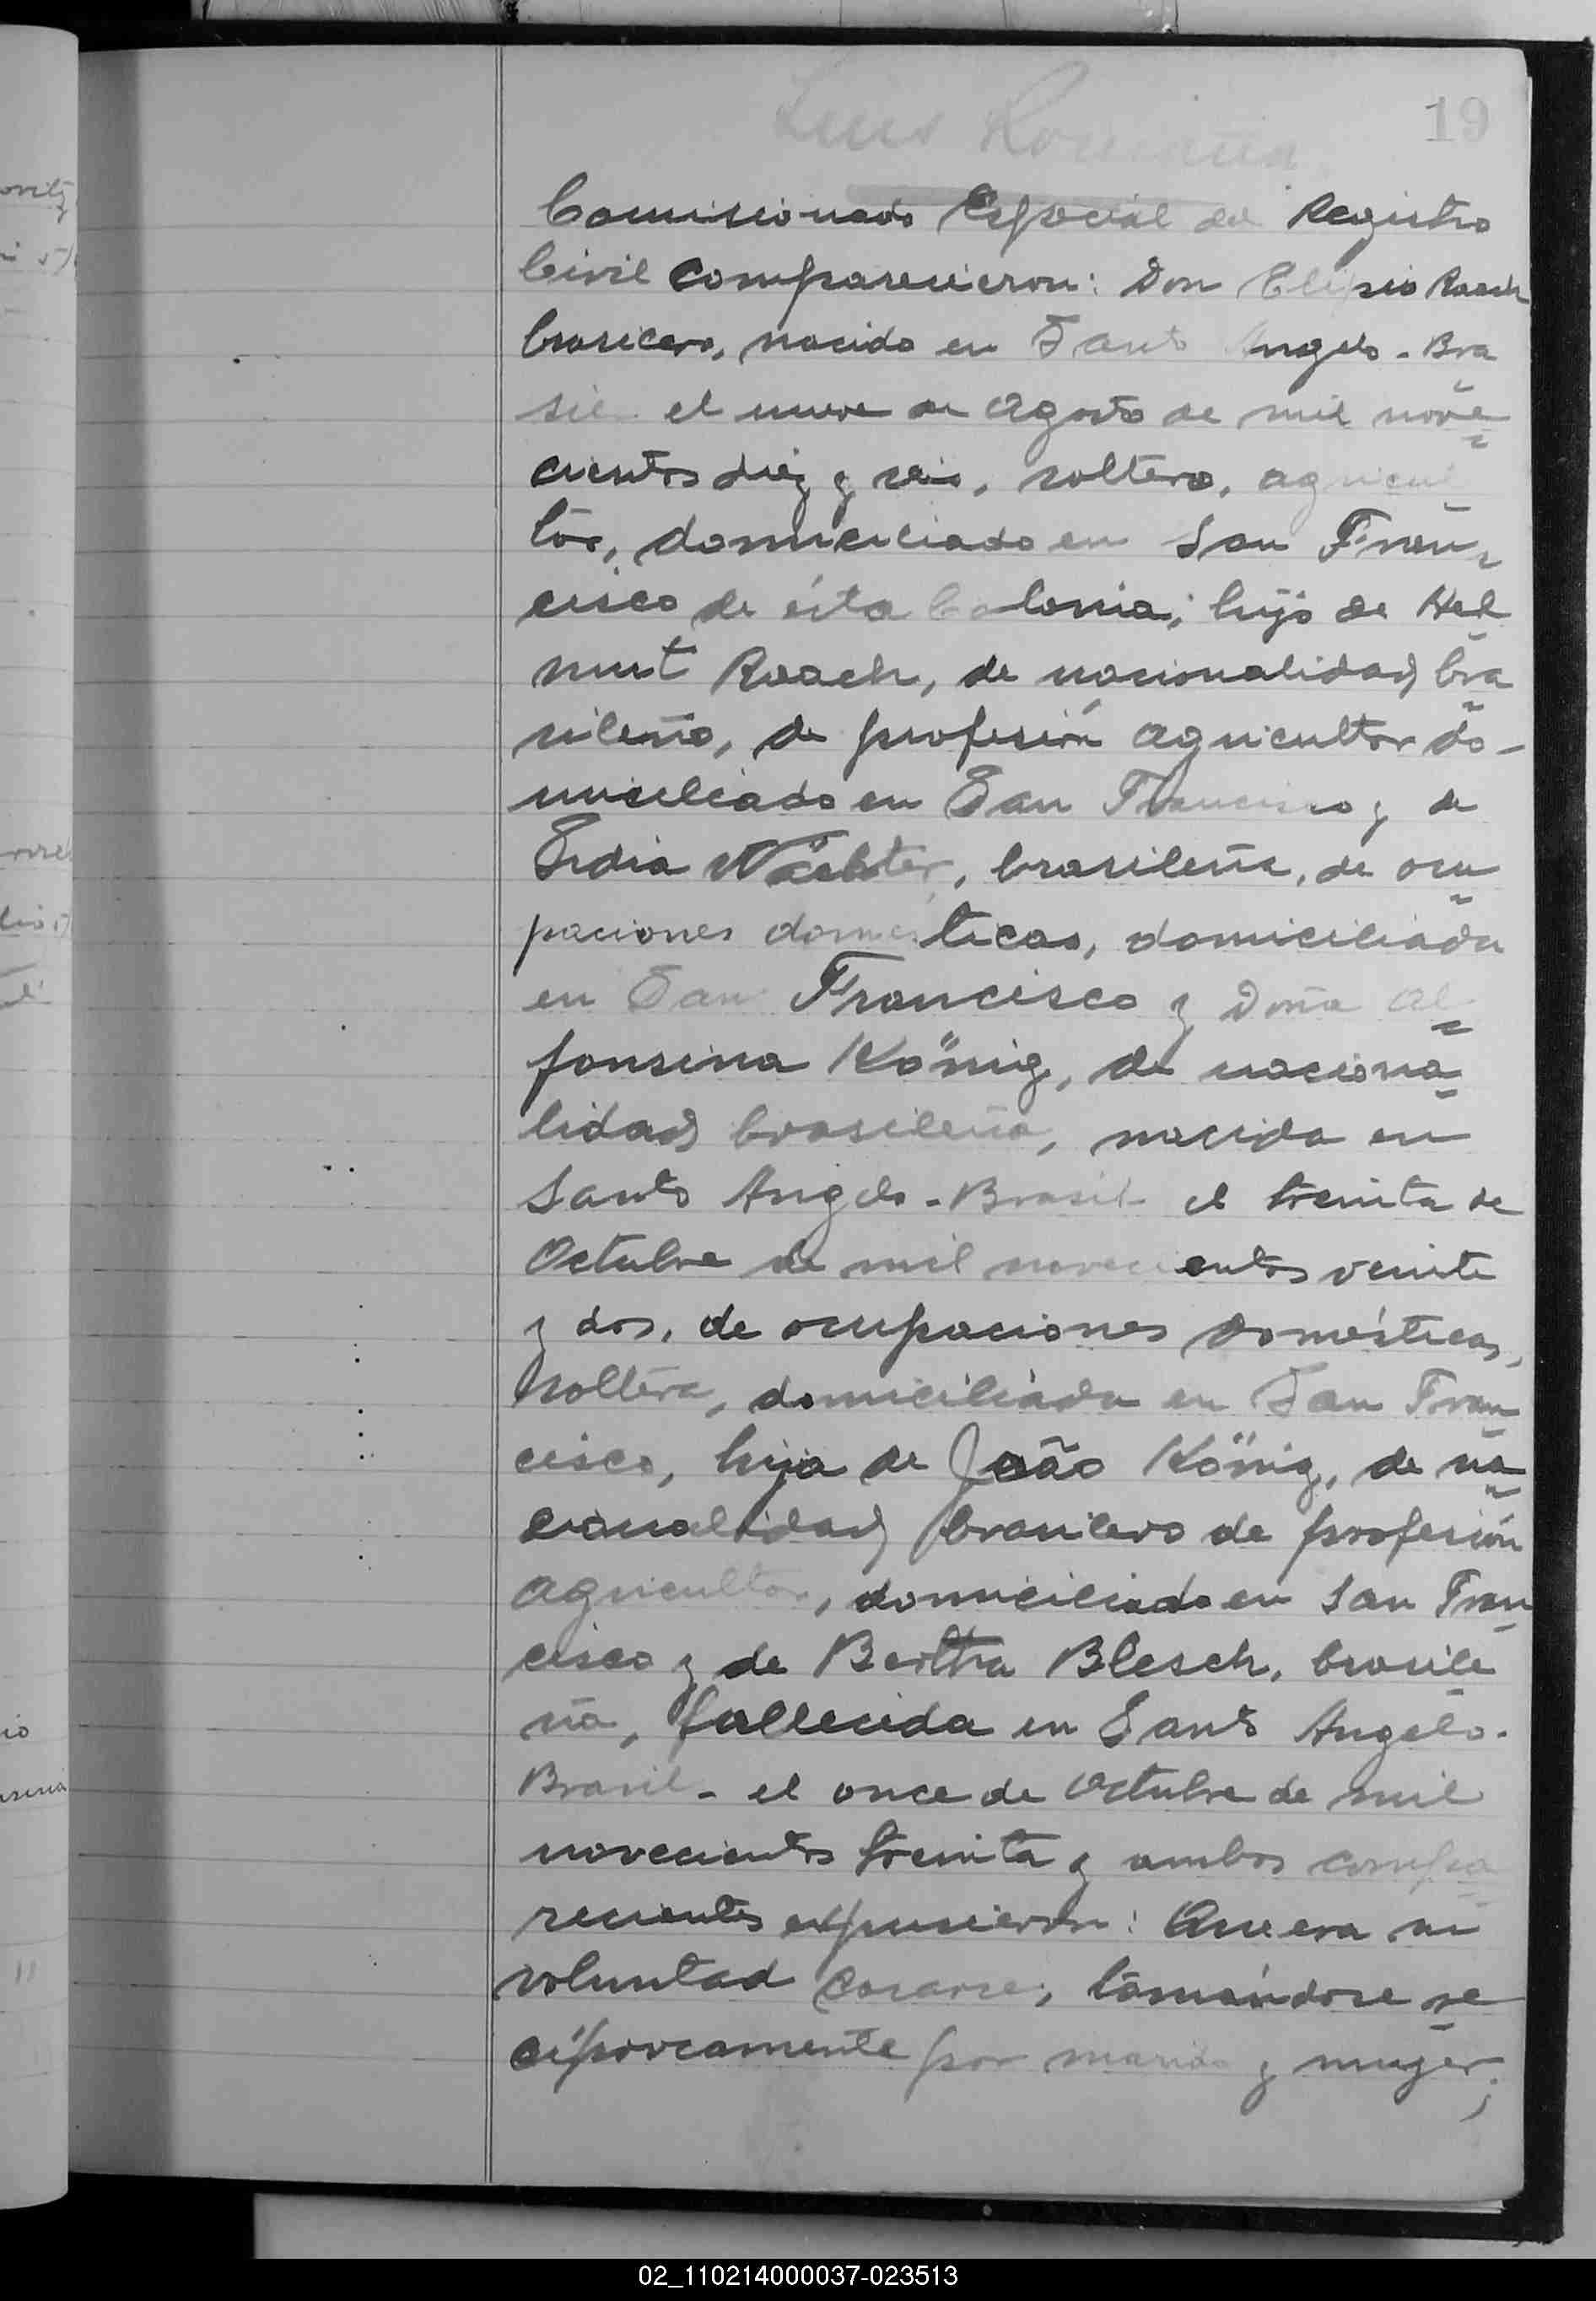 19
Luis
Comisionado Especial del Registro
Civil comparecieron: Don Elipio Raach
brasilero, nacido en Santo Angelo - Bra
sil el nueve de Agosto de mil nove
cientos diez y seis, soltero, agricul
tor, domiciliado en San Fran
cisco de ésta Colonia; hijo de Hel
mut Raach, de nacionalidad bra
sileño, de profesión agricultor do-
miciliado en San Francisco y de
Erdia Wächter, brasileña, de ocu
paciones domésticas, domiciliada
en San Francisco y Doña Al
fonsina König, de naciona
lidad brasileña, nacida en
Santo Angelo - Brasil - el treinta de
Octubre de mil novecientos veinte
y dos, de ocupaciones domésticas,
soltera, domiciliada en San Fran
cisco, hija de João König, de na
cionalidad brasilero de profesión
agricultor, domiciliado en San Fran
cisco y de Bertha Blesch, brasile
ña, fallecida en Santo Angelo -
Brasil - el once de Octubre de mil
novecientos treinta y ambos compa
recientes expusieron: Que era su
voluntad casarse, tomándose re
ciprocamente por marido y mujer;
02_110214000037-023513